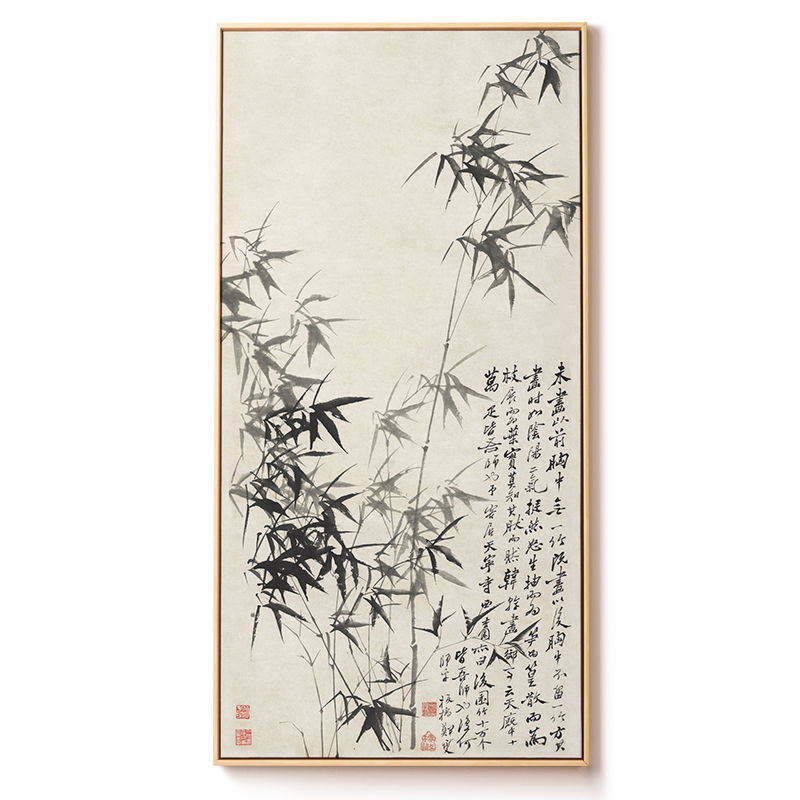 未畫以前胸中無一竹既畫以後胸中不留一竹方其
畫時如陰陽二氣挺然怒生抽而為筍為篁散而為
枝展而為葉實莫知其然而然韓幹畫御馬云天廄中十
萬疋皆吾師也予客居天寧寺西亦曰後園竹十万个
皆吾師也復何
師乎板橋鄭燮